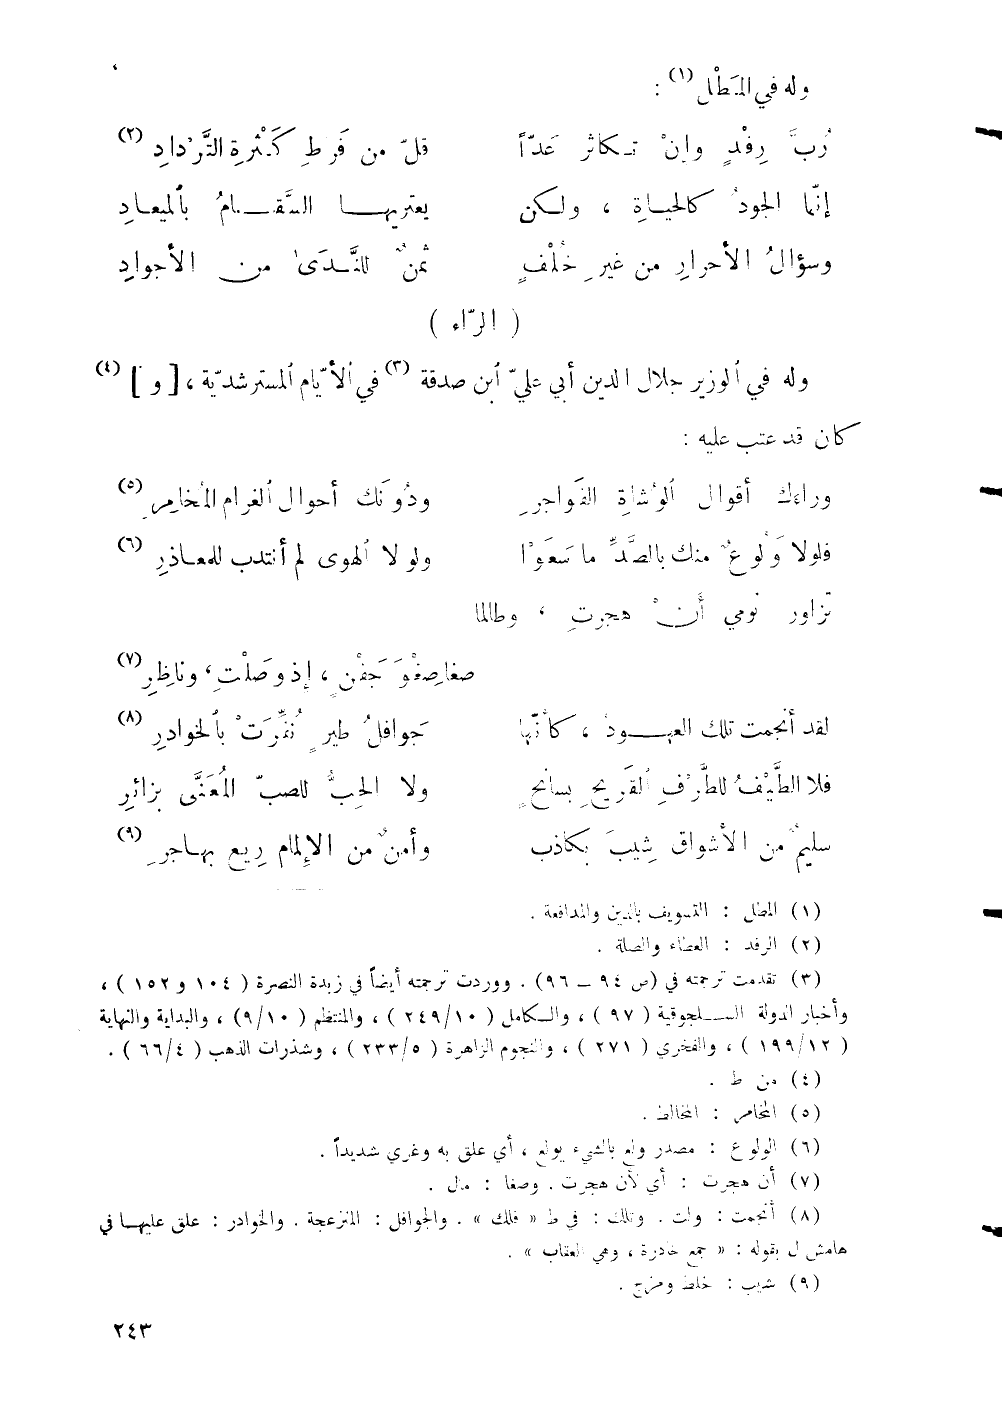 وله في المَطْل (١) :
رُبَّ رِفْدٍ وإنْ تـكاثر عَدّاً     قلّ من فَرطِ كَثْرةِ التَّرْدادِ (٢)
إنّما الجودُ كالحياةِ ، ولـكن     يعتريهـا السَّقـامُ بٱلميعـادِ
وسؤالُ الأحرارِ من غيرِ خُلْفٍ     ثمنٌ للنَّـدَىٰ من الأجوادِ
( الرّاء )
وله في ٱلوزير جلال الدين أبي عليّ ٱبن صدقة (٣) في ٱلأيّام ٱلمسترشديّة ، [ و ] (٤)
كان قد عتب عليه :
وراءك أقوال ٱلوُشاةِ الفَواجرِ     ودُونَك أحوال ٱلغرام المُخامِرِ (٥)
فلولا وَلُوعٌ منك بالصَّدِّ ما سَعَوْا     ولو لا ٱلهوى لم أنتدب للمعـاذرِ (٦)
تزاور نومي أَنْ هجرتِ ، وطالما
صغا صِفْوَ جَفْنٍ ، إذ وصَلْتِ ، وناظِرِ (٧)
لقد أنجمت تلك العهـودُ ، كأنّها     جَوافلُ طيرٍ نُفِّرَتْ بٱلخوادرِ (٨)
فلا الطَّيْفُ للطَّرْفِ ٱلقَريحِ بسانحٍ     ولا الحِبُّ للصبّ المُعَنَّى بزائرِ
سليمٌ من الأشواق شِيبَ بكاذب     وأمنٌ من الإلمام رِيع بهـاجرِ (٩)
(١) المطل : التسويف بالدين والمدافعة .
(٢) الرفد : العطاء والصلة .
(٣) تقدمت ترجمته في (ص ٩٤ ــ ٩٦) . ووردت ترجمته أيضاً في زبدة النصرة ( ١٠٤ و ١٥٢ ) ،
وأخبار الدولة السـلجوقية ( ٩٧ ) ، والـكامل ( ١٠/٢٤٩ ) ، والمنتظم ( ٩/١٠) ، والبداية والنهاية
( ١٢/١٩٩ ) ، والفخري ( ٢٧١ ) ، والنجوم الزاهرة ( ٥/٢٣٣ ) ، وشذرات الذهب ( ٤/٦٦ ) .
(٤) من ط .
(٥) المخامر : المخالط .
(٦) الولوع : مصدر ولع بالشيء يولع ، أي علق به وغري شديداً .
(٧) أن هجرت : أي لأن هجرت . وصغا : مال .
(٨) أنجمت : ولت . وتلك : في ط « فلك » . والجوافل : المنزعجة . والخوادر : علق عليهـا في
هامش ل بقوله : « جمع خادرة ، وهي العقاب » .
(٩) شيب : خلط ومزج .
٢٤٣